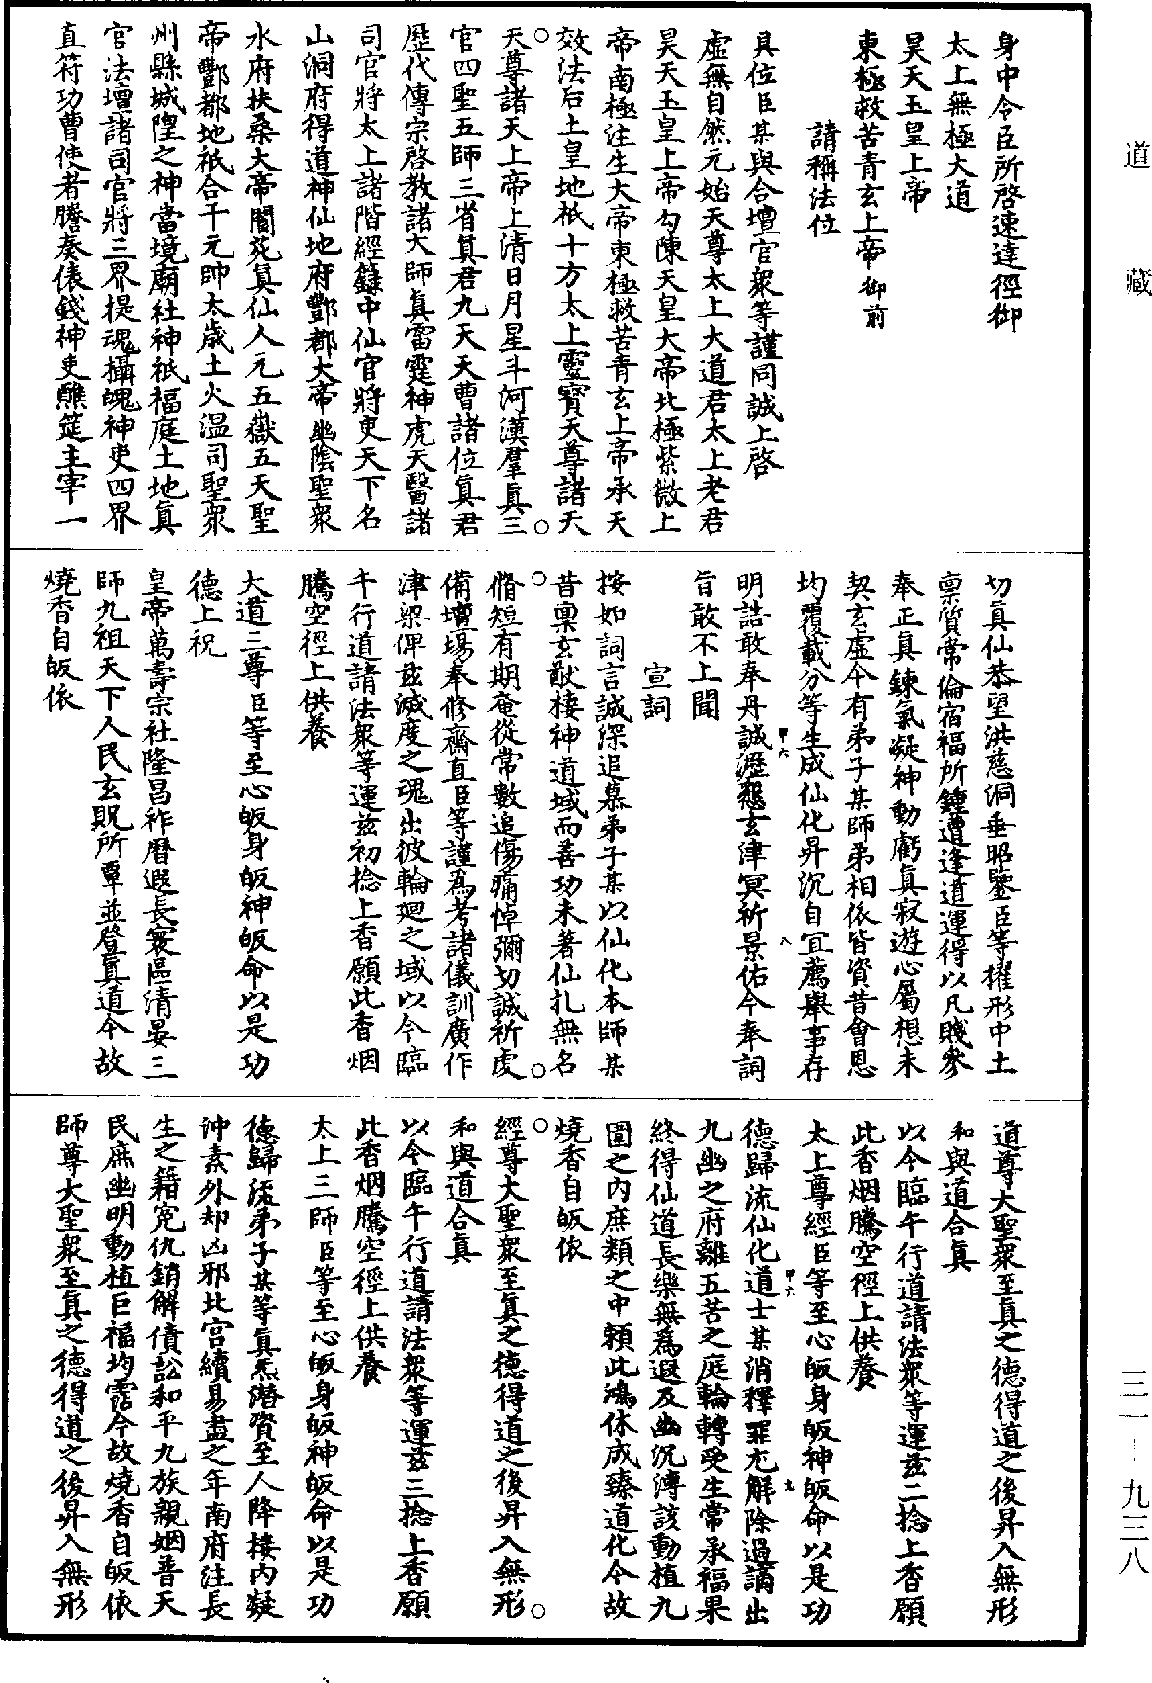 道藏
身中令臣所啓速達徑御
太上無極大道
昊天玉皇上帝
東極救苦青玄上帝御前
請稱法位
具位臣某與合壇官衆等謹同誠上啓
虛無自然元始天尊太上大道君太上老君
昊天玉皇上帝勾陳天皇大帝北極紫微上
帝南極注生大帝東極救苦青玄上帝承天
效法后土皇地祇十方太上靈寶天尊諸天
天尊諸天上帝上清日月星斗河漢羣真三
官四聖五師三省真君九天天曹諸位真君
歷代傳宗啓教諸大師真雷霆神虎天醫諸
司官將太上諸階經籙中仙官將吏天下名
山洞府得道神仙地府酆都大帝幽陰聖衆
水府扶桑大帝閬苑真仙人元五嶽五天聖
帝酆都地祇合干元帥太歲土火溫司聖衆
州縣城隍之神當境廟社神祇福庭土地真
官法壇諸司官將三界提魂攝魄神吏四界
直符功曹使者謄奏俵錢神吏醮筵主宰一
切真仙恭望洪慈洞垂昭鑒臣等擢形中土
稟質常倫宿福所鍾遭逢道運得以凡賤參
奉正真鍊氣凝神動虧真寂遊心屬想未
契玄虛今有弟子某師弟相依皆資昔會恩
均覆載分等生成仙化昇沉自宜薦舉事存
明誥敢奉丹誠瀝懇玄津冥祈景佑今奉詞
旨敢不上聞
宣詞
按如詞言誠深追慕弟子某以仙化本師某
昔稟玄猷棲神道域而善功未著仙扎無名
脩短有期奄從常數追傷痛悼彌切誠祈虔
備壇場奉修齋直臣等謹爲考諸儀訓廣作
津梁俾茲滅度之魂出彼輪廻之域以今臨
午行道請法衆等運茲初捻上香願此香烟
騰空徑上供養
大道三尊臣等至心皈身皈神皈命以是功
德上祝
皇帝萬壽宗社隆昌祚曆遐長寰區清晏三
師九祖天下人民玄貺所覃並登真道今故
燒香自皈依
道尊大聖衆至真之德得道之後昇入無形
和與道合真
以今臨午行道請法衆等運茲二捻上香願
此香烟騰空徑上供養
太上尊經臣等至心皈身皈神皈命以是功
德歸流仙化道士某消釋罪尤解除過謫出
九幽之府離五苦之庭輪轉受生常承福果
終得仙道長樂無爲遐及幽沉溥該動植九
圍之內庶類之中頼此鴻休成臻道化今故
燒香自皈依
經尊大聖衆至真之德得道之後昇入無形
和與道合真
以今臨午行道請法衆等運茲三捻上香願
此香烟騰空徑上供養
太上三師臣等至心皈身皈神皈命以是功
德歸流弟子某等真炁潛資至人降接內凝
沖素外却凶邪北宮續易盡之年南府注長
生之籍冤仇銷解債訟和平九族親姻普天
民庶幽明動植巨福均霑今故燒香自皈依
師尊大聖衆至真之德得道之後昇入無形
三一－九三八